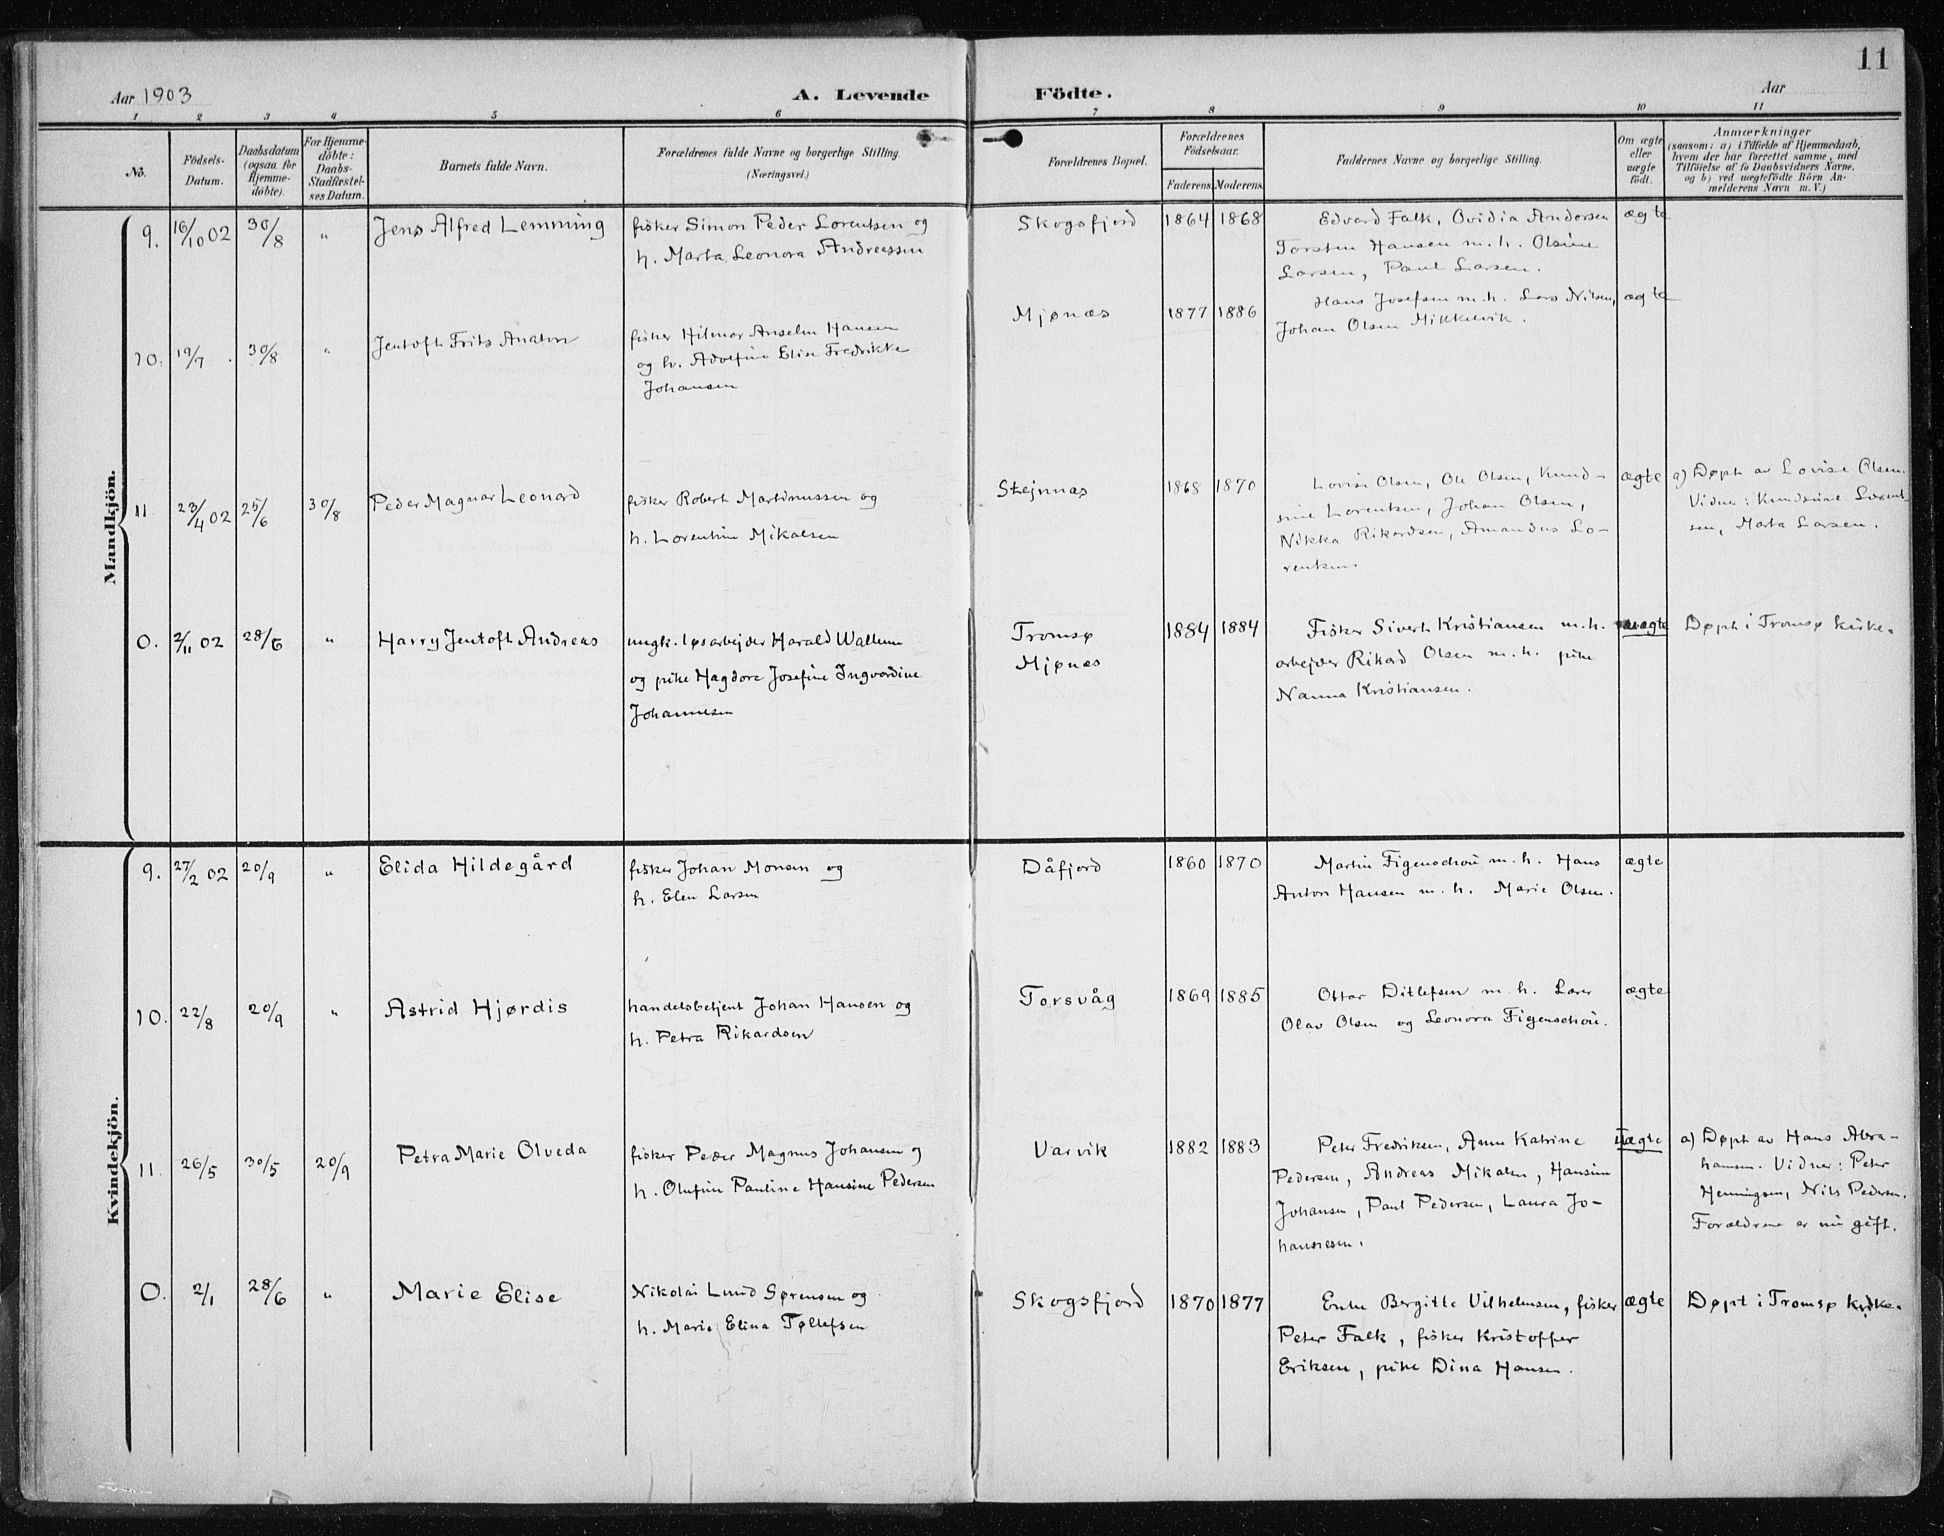 11
Aar 1903 A. Levende Födte. Aar
1 2 3 4 5 6 7 8 9 10 11
No.
Födsels-
Datum.
Daabsdatum
(ogsaa for
Hjemme-
döbte).
For Hjemme-
döbte:
Daabs-
Stadfæstel-
ses Datum.
Barnets fulde Navn.
Forældrenes fulde Navne og borgerlige Stilling.
(Næringsvei.)
Forældrenes Bopæl.
Forældrenes
Födselsaar.
Faderens. Moderens.
Faddernes Navne og borgerlige Stilling.
Om ægte
eller
uægte
født.
Anmærkninger
(saasom: a) i Tilfælde af Hjemmedaab,
hvem der har forrettet samme, med
Tilföielse af to Daabsvidners Navne,
og b) ved uægtefödte Börn An-
melderens Navn m. V.)
Mandkjön.
9. 16/10 02 30/8 " Jens Alfred Lemming
fisker Simon Peder Lorentsen og
h. Marta Leonora Andreassen
Skogsfjord 1864 1868
Edvard Falk, Ovidia Andersen
Torsten Hansen m. h. Olsine
Larsen, Paul Larsen.
ægte
10. 19/7 . 30/8 " Jentoft Frits Anaton
fisker Hilmar Anselm Hansen
og h. Adolfine Elise Fredrikke
Johansen
Mjønæs 1877 1886
Hans Josefsen m. h. Lars Nilsen,
Johan Olsen Mikkelvik.
ægte
11. 23/4 02 25/6 30/8 Peder Magnar Leonard
fisker Robert Martinussen og
h. Lorentine Mikalsen
Stejnnæs 1868 1870
Lovise Olsen, Ole Olsen, Kund-
sine Lorentsen, Johan Olsen,
Nikka Rikardsen, Amandus Lo-
rentsen
ægte
a) Døpt av Lovise Olsen.
Vidner: Kundsine Lorent-
sen, Marta Larsen.
0. 2/11 02 28/6 " Harry Jentoft Andreas
ungk. løsarbejder Harald Wallum
og pike Hagdora Josefine Ingvardine
Johannesen
Tromsø
Mjønæs
1884 1884
Fisker Sivert Kristiansen m. h.
arbejder Rikard Olsen m. h. pike
Nanna Kristiansen.
uægte
Døpt i Tromsø kirke.
Kvindekjön.
9. 27/2 02 20/9 " Elida Hildegård
fisker Johan Monsen og
h. Elen Larsen
Dåfjord 1860 1870
Martin Figenschou m. h. Hans
Anton Hansen m. h. Marie Olsen.
ægte
10. 22/8 20/9 " Astrid Hjørdis
handelsbetjent Johan Hansen og
h. Petra Rikardsen
Torsvåg 1869 1885
Ottar Ditlefsen m. h. Lærer
Olav Olsen og Leonora Figenschou.
ægte
11. 26/5 30/5 20/9 Petra Marie Olveda
fisker Peder Magnus Johansen og
h. Olufine Pauline Hansine Pedersen
Varvik 1882 1883
Peter Fredriksen, Anne Katrine
Pedersen, Andreas Mikalsen, Hansine
Johansen, Paul Pedersen, Laura Jo-
hannesen.
Uægte
a) Døpt av Hans Abra-
hamsen. Vidner: Peter
Henningsen, Nils Pedersen.
Forældrene er nu gift.
0. 2/1 28/6 " Marie Elise
Nikolai Lund Sørensen og
h. Marie Elina Tøllefsen
Skogsfjord 1870 1877
Enke Bergitte Vilhelmsen, fisker
Peter Falk, fisker Kristoffer
Eriksen, pike Dina Hansen.
ægte
Døpt i Tromsø kirke.